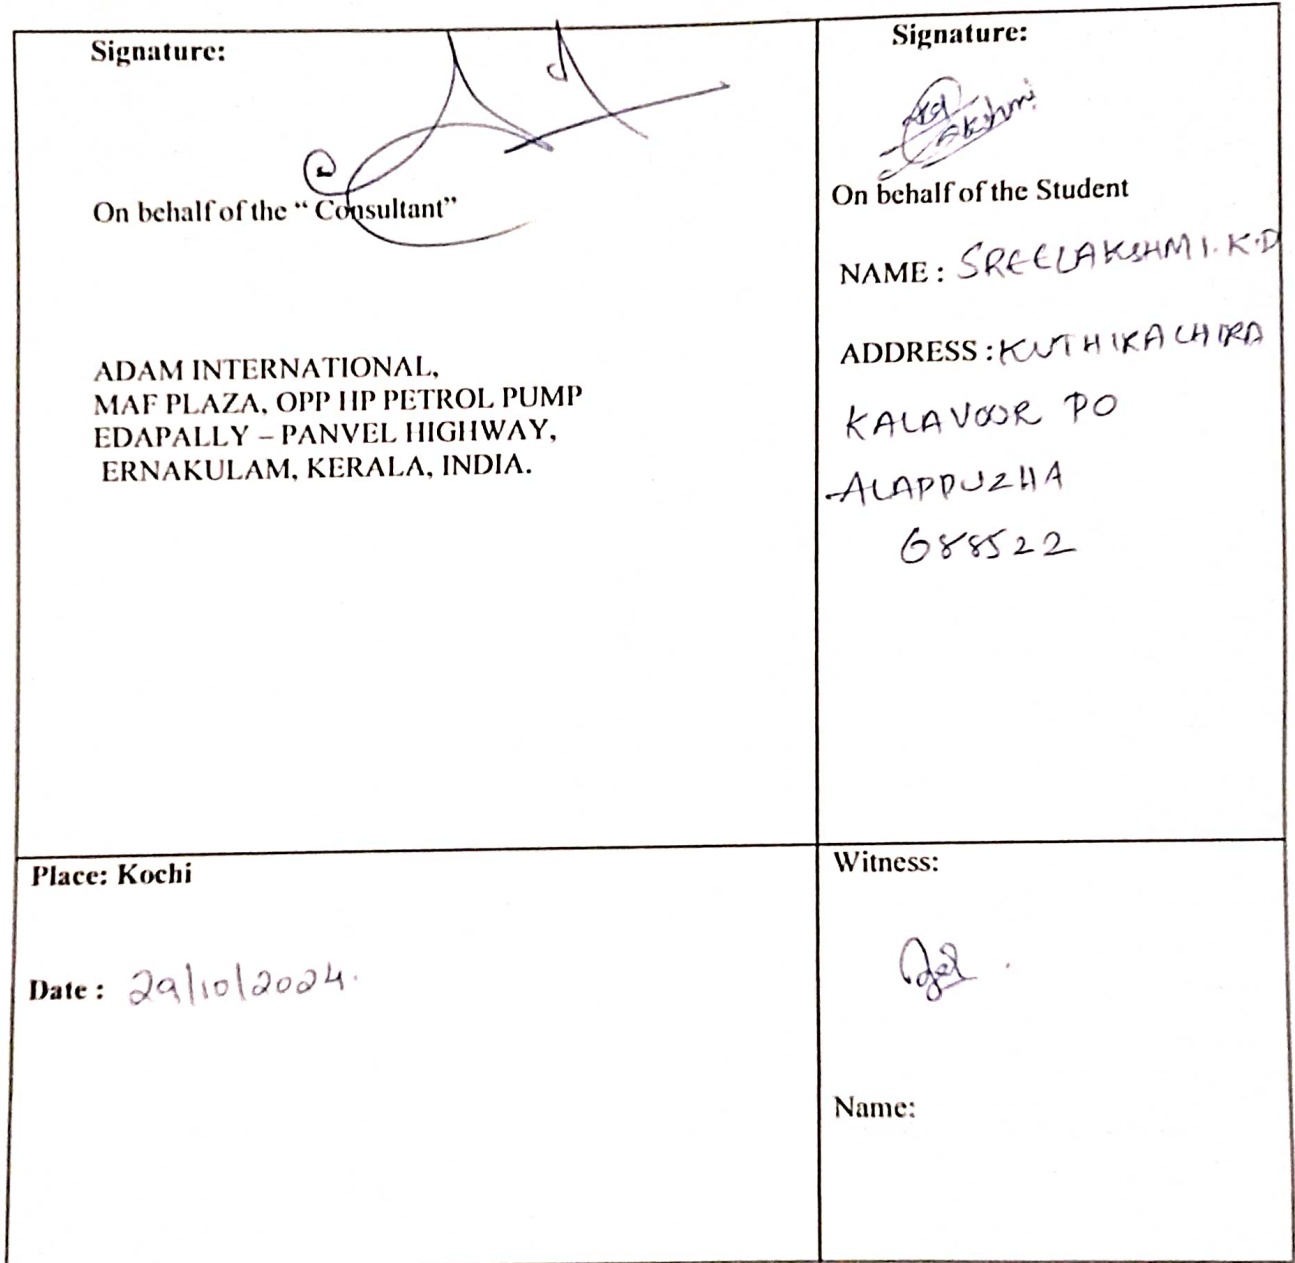 Signature:
On behalf of the “ Consultant”
ADAM INTERNATIONAL,
MAF PLAZA, OPP HP PETROL PUMP
EDAPALLY – PANVEL HIGHWAY,
ERNAKULAM, KERALA, INDIA.
Signature:
On behalf of the Student
NAME : SREELAKSHMI.K.D
ADDRESS : KUTHIKACHIRA
KALAVOOR PO
ALAPPUZHA
688522
Place: Kochi
Date : 29/10/2024.
Witness:
Name: